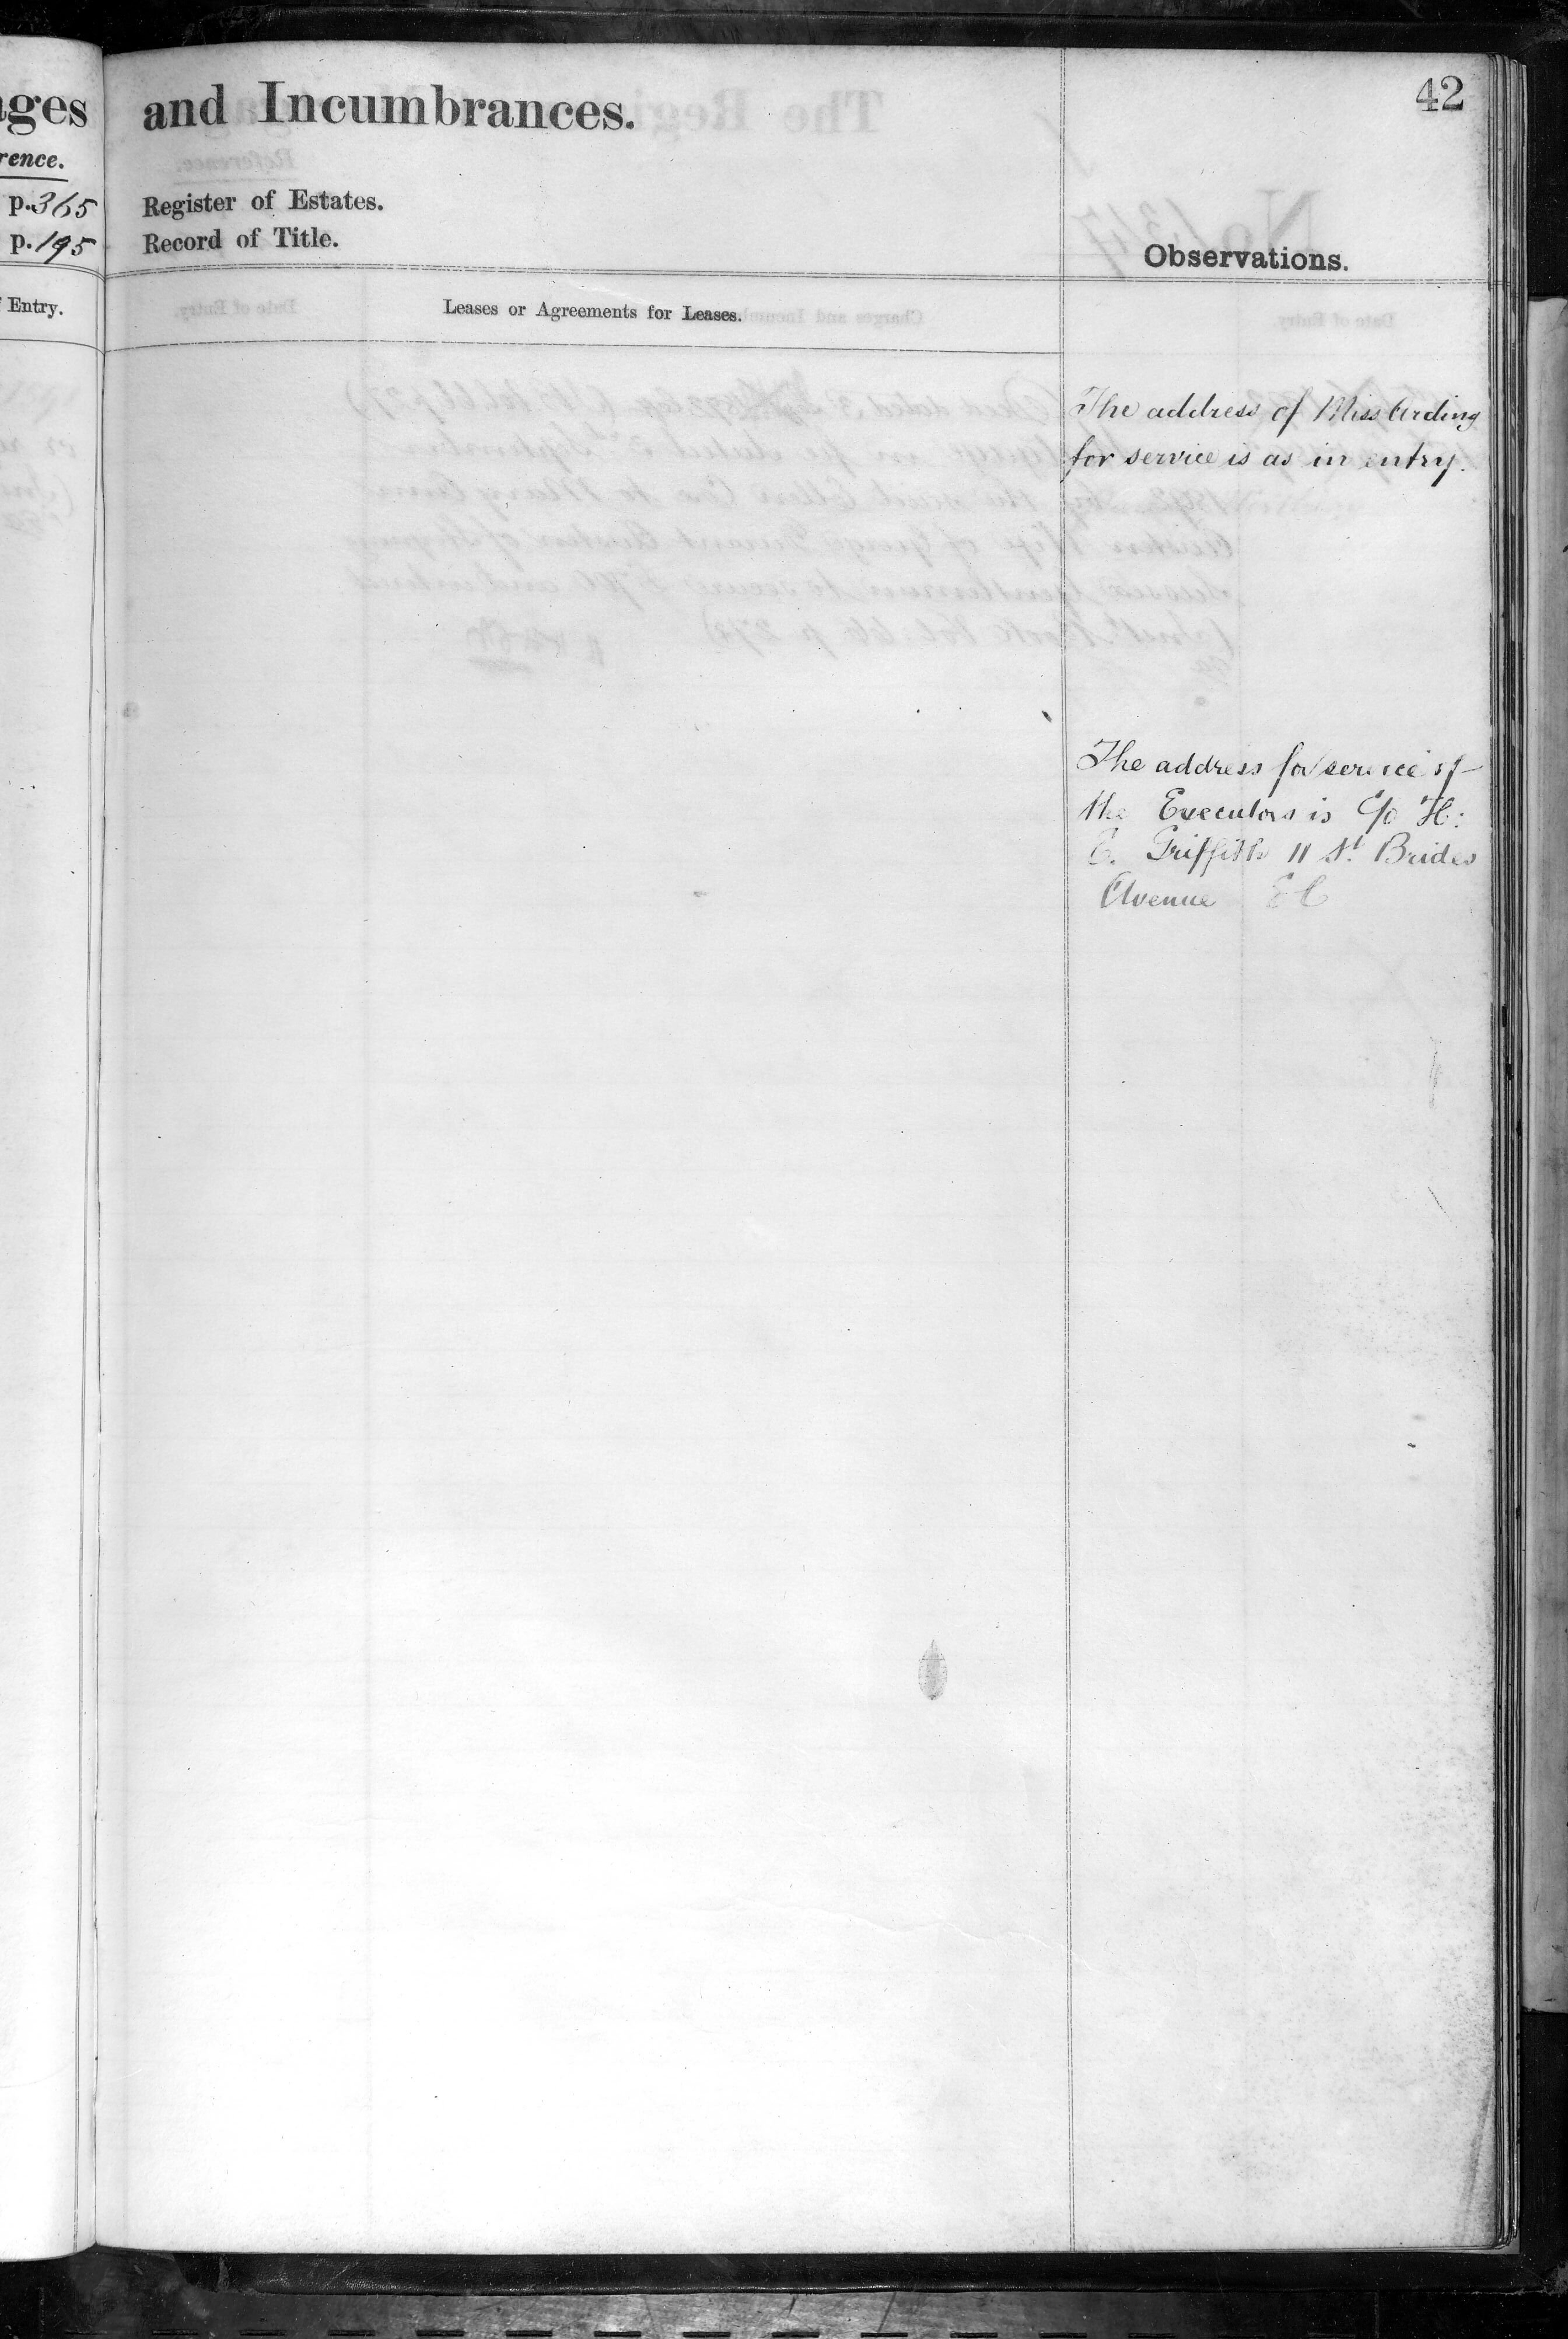 ages
and Incumbrances.
42
rence.
p. 365
Register of Estates.
p. 195
Record of Title.
Observations.
Entry.
Leases or Agreements for Leases.
The address of Miss
for service is as in entry.
The address for service of
the Executors is C/o H:
E. Griffith 11 St. Brides
Avenue EC